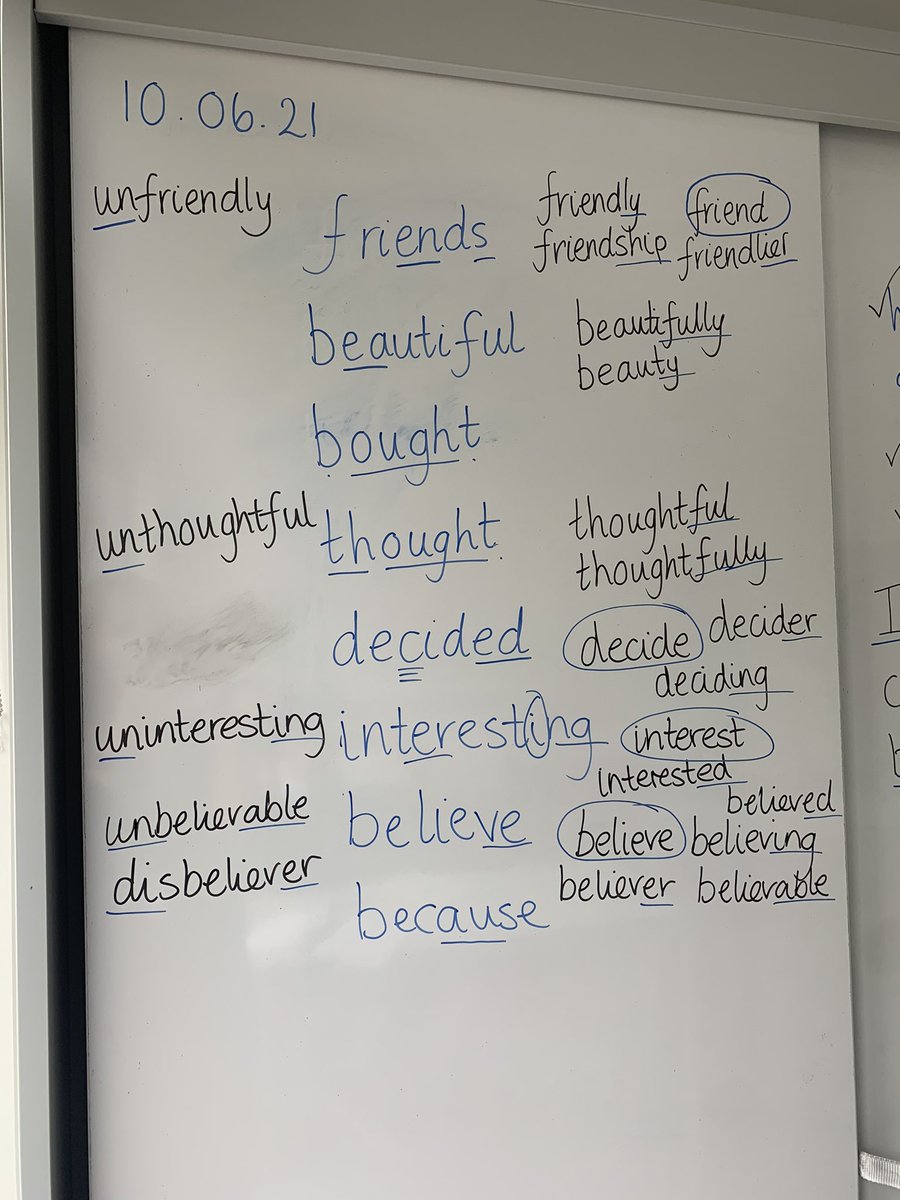 10.06.21
unfriendly friends friendly friend
friendship friendlier
beautiful beautifully
beauty
bought
unthoughtful thought thoughtful
thoughtfully
decided decide decider
deciding
uninteresting interesting interest
interested
unbelievable believe believe believed
believing
disbeliever believer believable
because